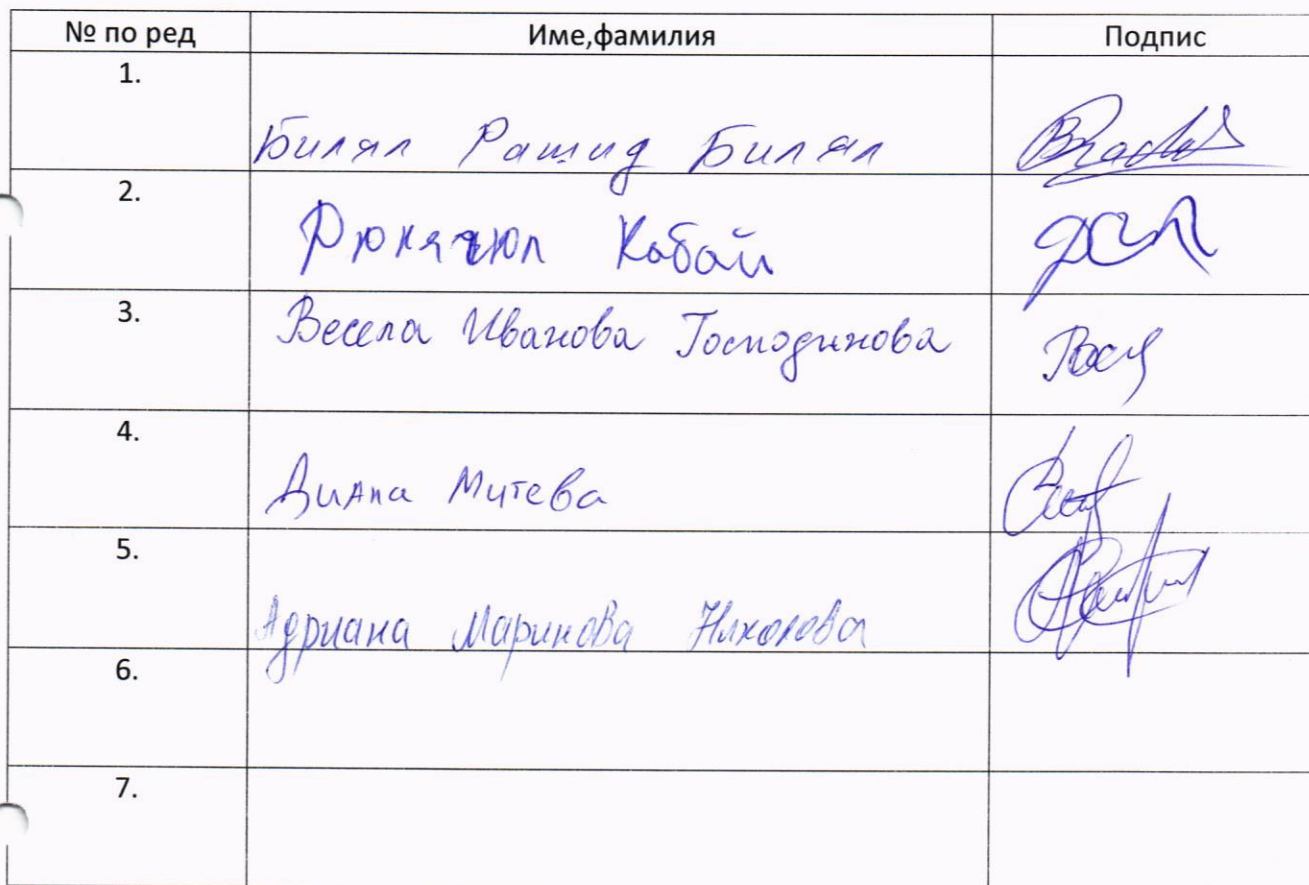 № по ред Име,фамилия Подпис
1. Билял Рашид Билял
2. Кабай
3. Весела Иванова Господинова
4. Диана Митева
5. Адриана Маринова Николова
6.
7.